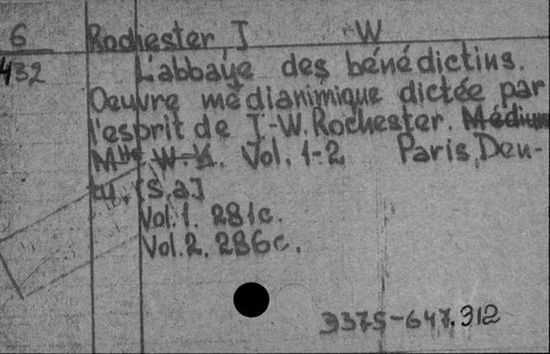 6 Rochester, J W
432 L'abbaye des bénédictins.
Oeuvre médianimique dictée par
l'esprit de J.-W. Rochester. Médium
Mlle W. K. Vol. 1-2 Paris, Den-
tu, [S.a]
Vol. 1. 281c.
Vol. 2. 286c.
9375-647.912